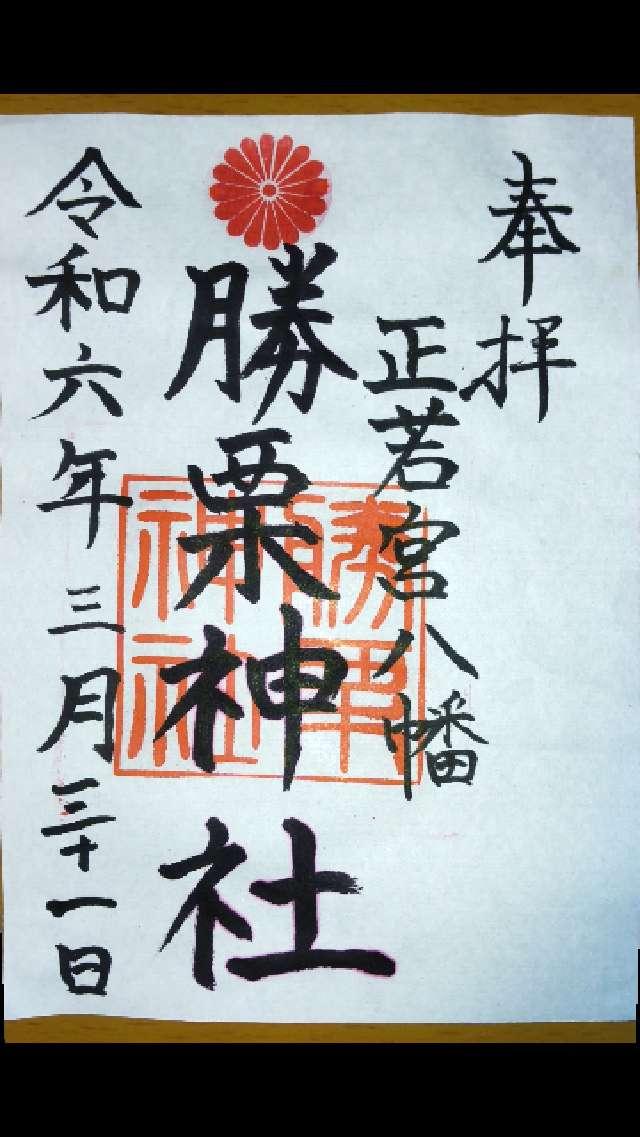 奉拝
正若宮八幡
勝栗神社
勝栗神社
令和六年三月三十一日